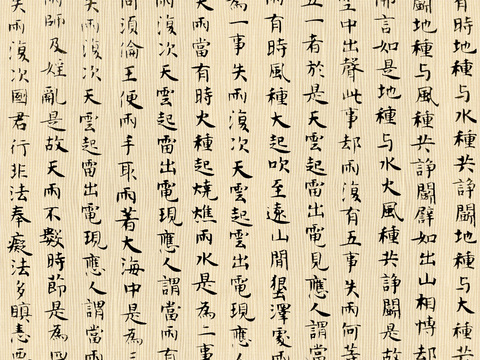 有時地種与水種共諍鬪地種与大種共
鬪地種与風種共諍鬪如出山相却
佛言如是地種与水火風種共諍鬪是故
空中出聲此事却雨復有五事失雨何等
五一者於是天雲起雷出電見應人謂當雨
雨有時風種大起吹至遠山閒澤處雨
為一事失雨復次天雲起雷出電現應人
天雨當有時火種起燒燋雨水是為二事
雨復次天雲起雷出電現應人謂當雨有
時須倫王便兩手取雨著大海中是為三
失雨復次天雲起雷出電現應人謂當雨
雨師及婬亂是故天雨不數時節是為四
失雨復次國君行非法奉癡法多瞋恚